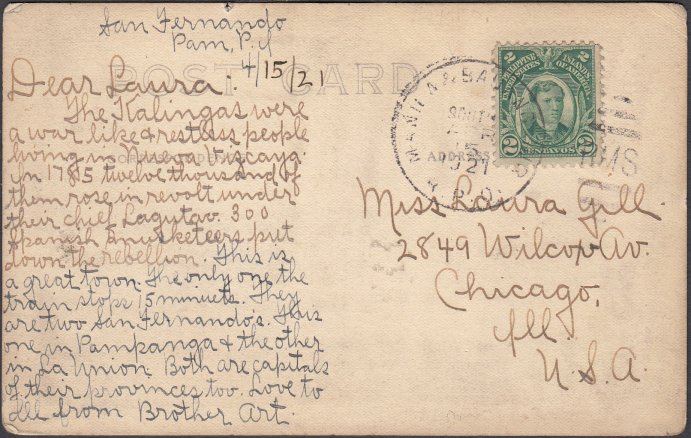 San Fernando
Pam, P.I
4/15/21
POST CARD
Dear Laura:
The Kalingas were
a war like & restless people
living in Nueva Viscaya.
in 1785 twelve thousand of
them rose in revolt under
their chief Lagutao. 300
Spanish musketeers put
down the rebellion. This is
a great town. The only one the
train stops 15 minuets. They
are two San Fernando's. This
one in Pampanga & the other
in La Union. Both are capitals
of their provinces too. Love to
all from Brother Art.
2 2
PHILIPPINE ISLANDS
UNITED STATES OF AMERICA
2 CENTAVOS 2
ADDRESS
21
R.P.O.
Miss Laura Gill.
2849 Wilcox Av.
Chicago,
Ill.
U.S.A.